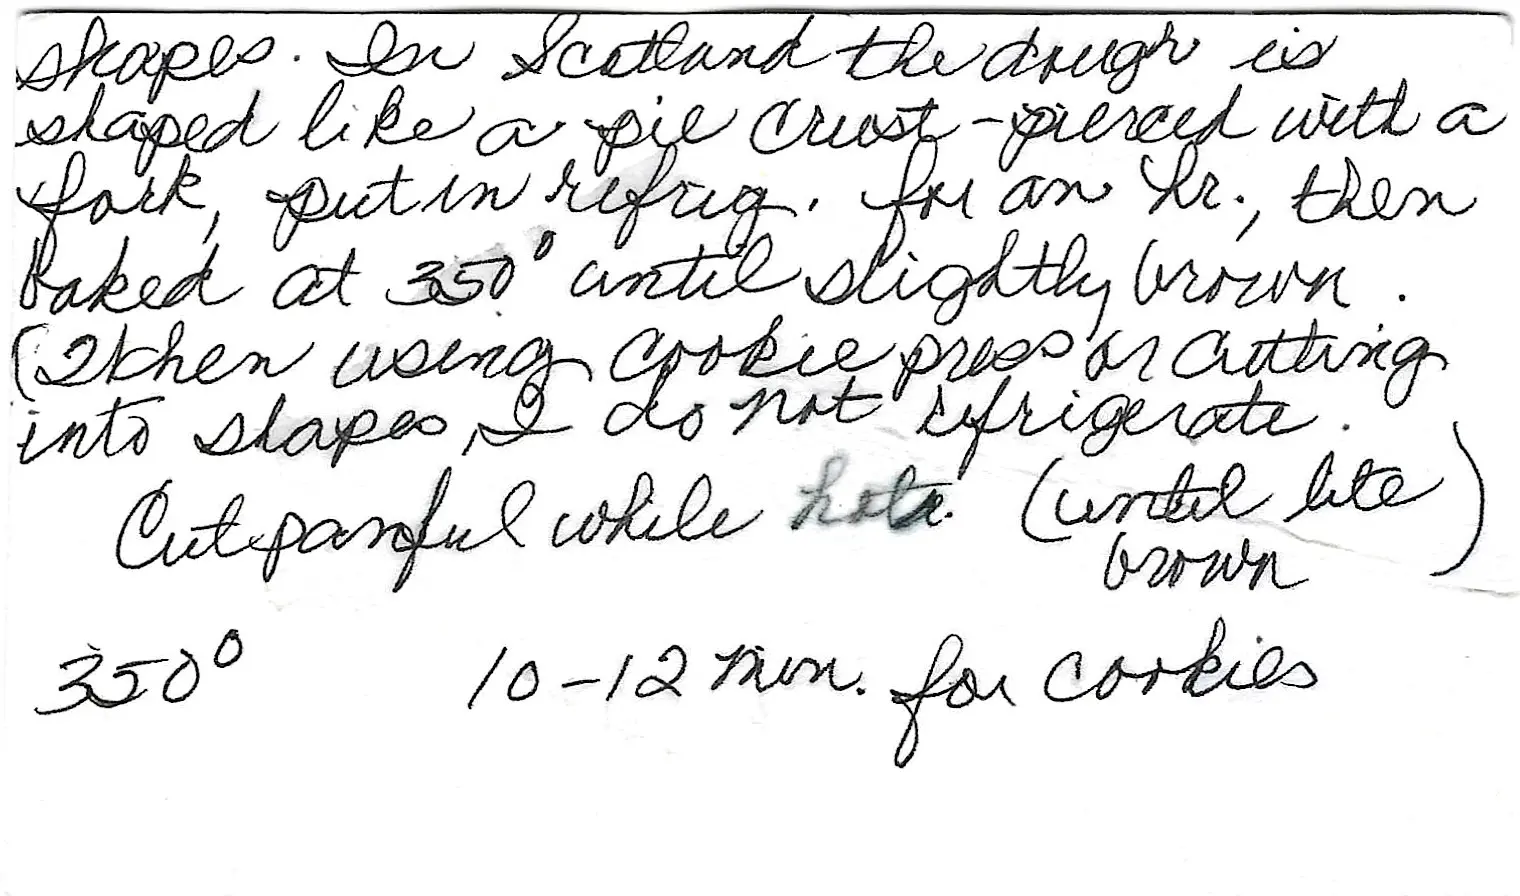 shapes. In Scotland the dough is
shaped like a pie crust - pierced with a
fork, put in refrig. for an hr., then
baked at 350° until slightly brown.
(When using cookie press or cutting
into shapes, I do not refrigerate.
Cut panful while hot. (until lite
brown)
350° 10-12 min. for cookies